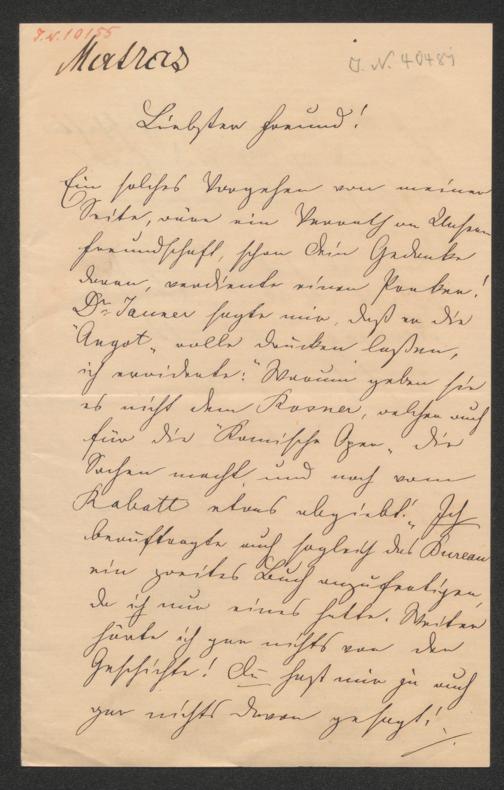 J.N. 10155
Matras
J. N. 40481
Liebster Freund!
Ein solches Vorgehen von meiner
Seite, wäre ein Verrath an unserer
Freundschaft, schon Dein Gedanke
daran, verdiente einen
Dr Jauner sagte mir, daß er die
"Angot" wolle drucken laßen,
ich erwiderte: "Warum geben sie
es nicht dem Rosner, welcher auch
für die "Komische Oper" die
Sachen macht, und noch vom
Rabatt etwas abgiebt." Ich
beauftragte auch sogleich das Bureau
ein zweites Buch anzufertigen,
da ich nur eines hatte. Weiter
hörte ich gar nichts von der
Geschichte! Du hast mir ja auch
gar nichts davon gesagt!